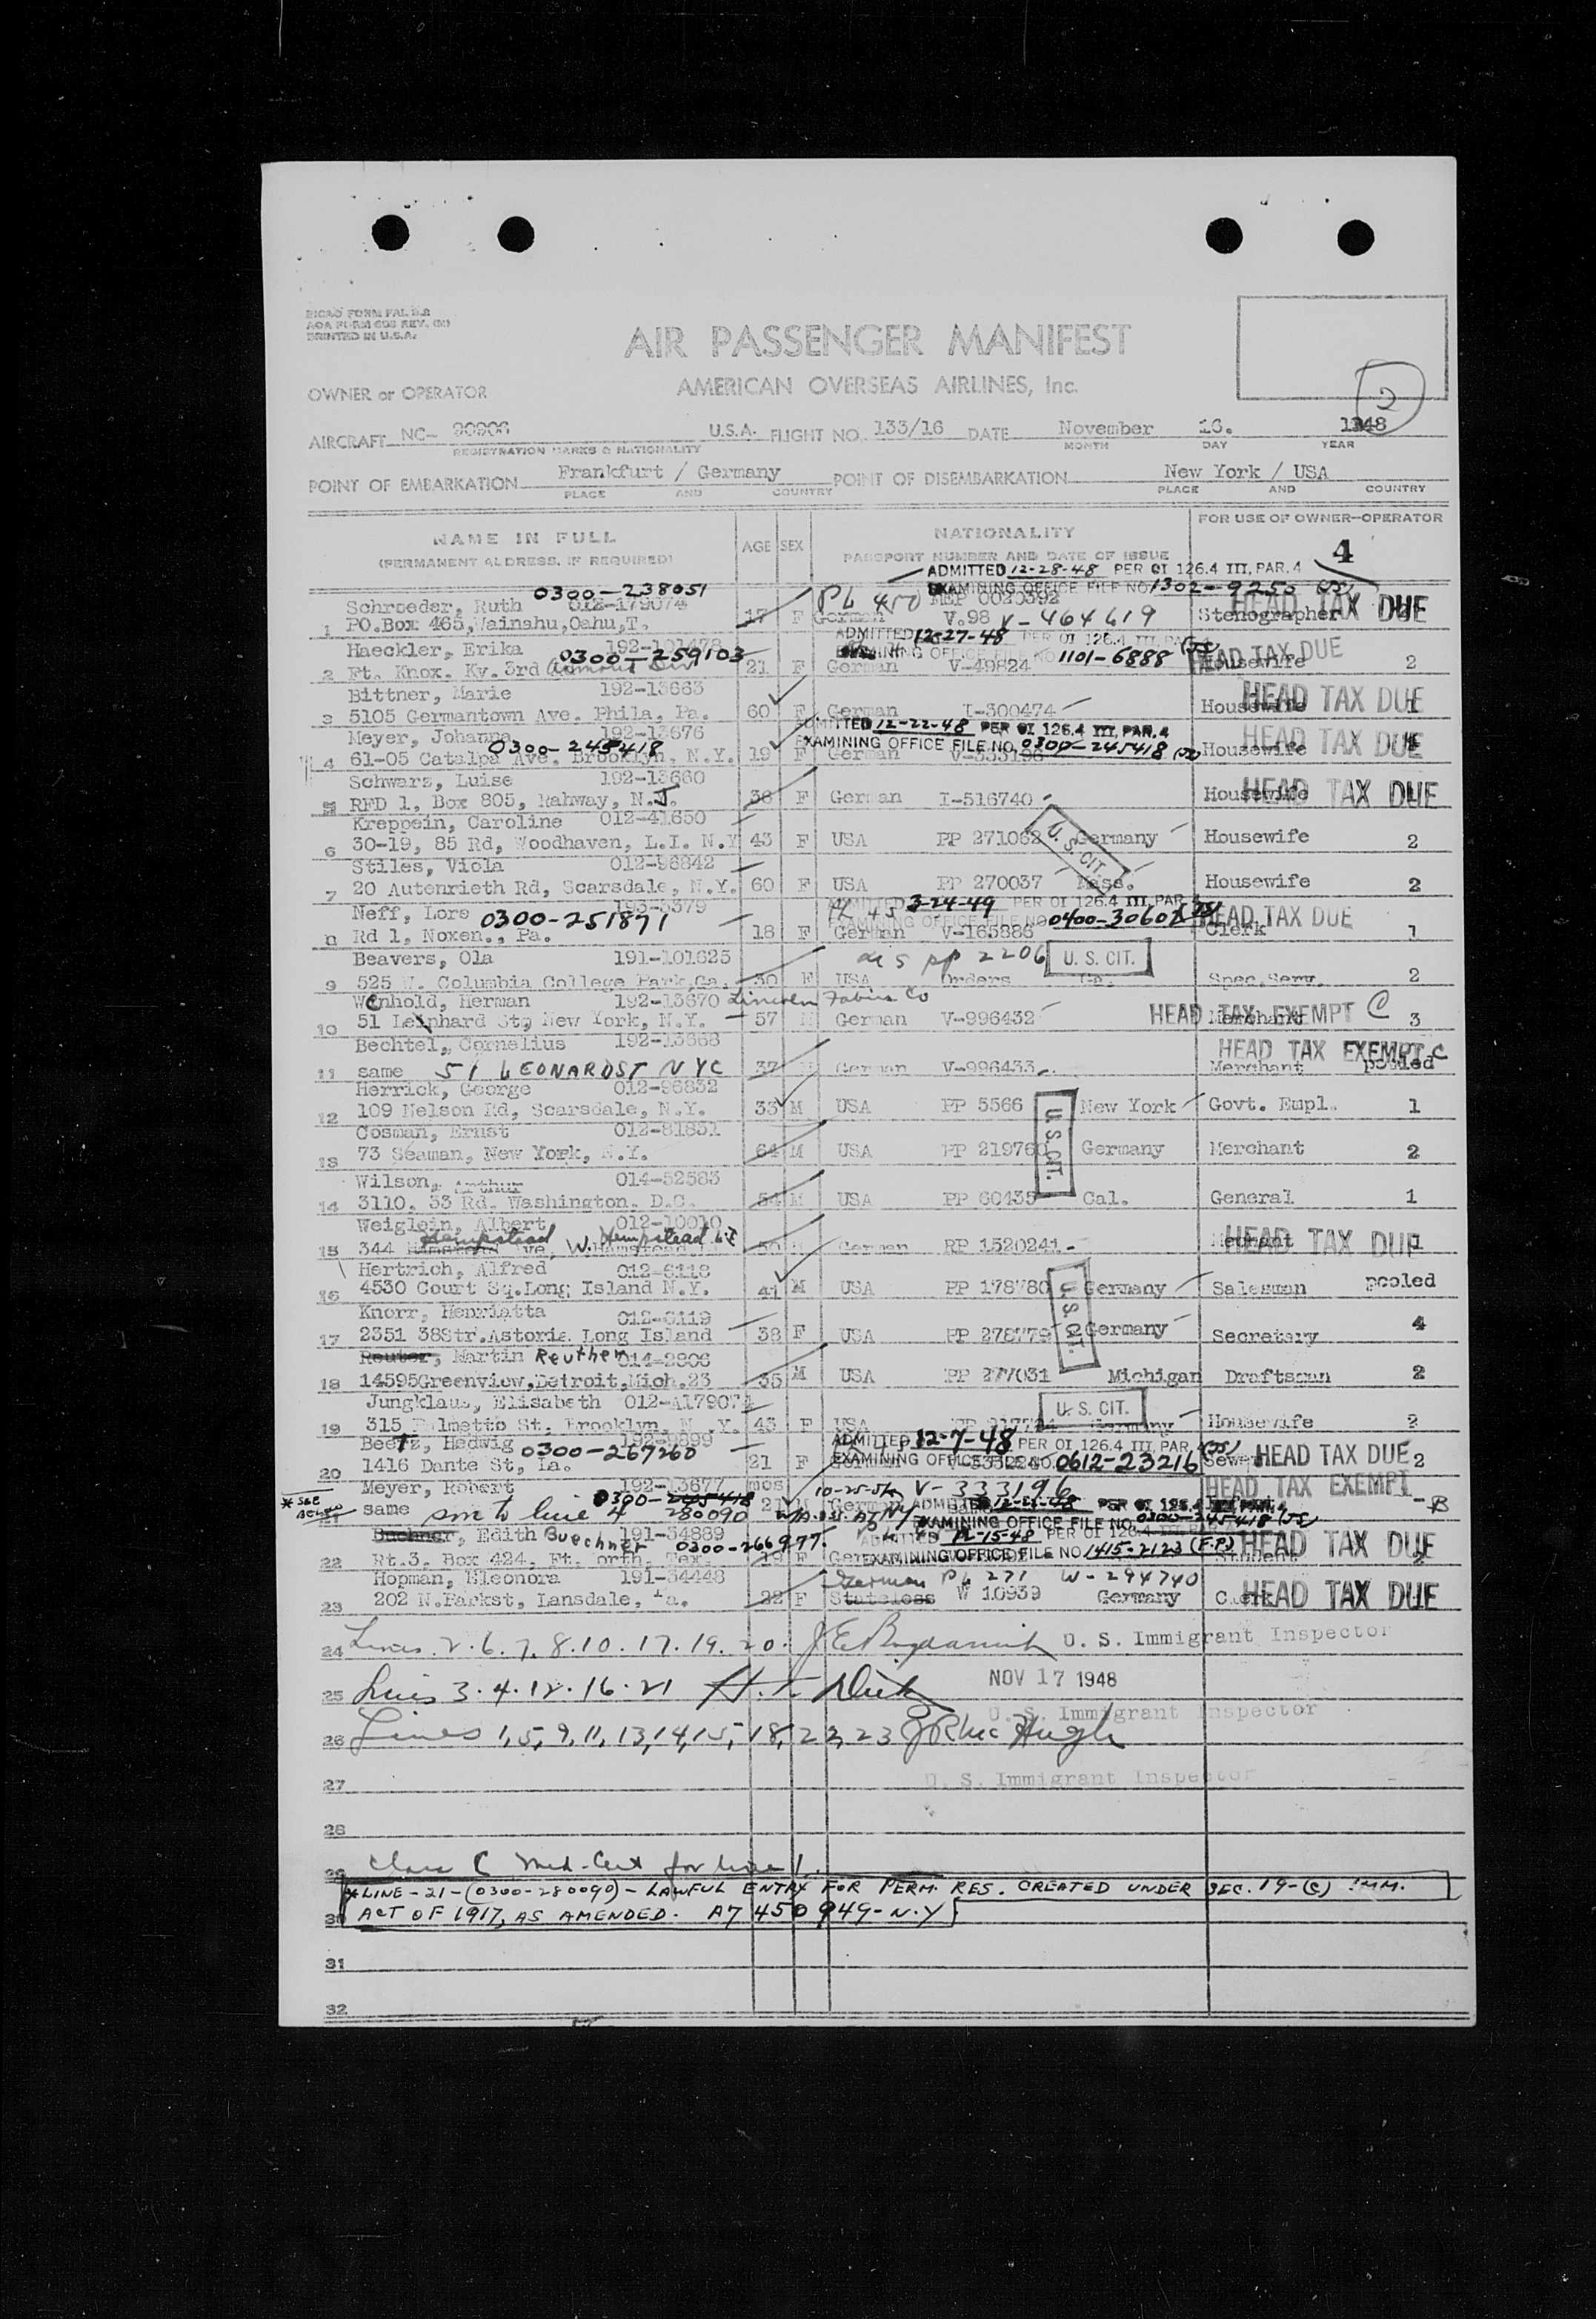 BICAO FORM PAI. 9.2
AOA FORM 603 REV.
PRINTED IN U.S.A.
AIR PASSENGER MANIFEST
OWNER or OPERATOR
AMERICAN OVERSEAS AIRLINES, Inc.
2
AIRCRAFT NC- 90906 U.S.A. FLIGHT NO. 133/16 DATE November 16. 1948
REGISTRATION MARKS & NATIONALITY MONTH DAY YEAR
POINT OF EMBARKATION Frankfurt / Germany POINT OF DISEMBARKATION New York / USA
PLACE AND COUNTRY PLACE AND COUNTRY
NAME IN FULL AGE SEX NATIONALITY FOR USE OF OWNER-OPERATOR
(PERMANENT ADDRESS, IF REQUIRED) PASSPORT NUMBER AND DATE OF ISSUE 4
ADMITTED 12-28-48 PER OI 126.4 III, PAR. 4
0300-238051 EXAMINING OFFICE FILE NO 1302-9250
Schroeder, Ruth 012-179074 PL 450 MEP 0020392 HEAD TAX DUE
1 PO.Box 465, Wainahu, Oahu, T. 17 F German V.98 V-464619 Stenographer
ADMITTED 12-27-48 PER OI 126.4 III, PAR
Haeckler, Erika 192-101478 EXAMINING OFFICE FILE NO 1101-6888 HEAD TAX DUE
0300-259103
2 Ft. Knox. Ky. 3rd 21 F German V-49824 Housewife 2
Bittner, Marie 192-13663 HEAD TAX DUE
3 5105 Germantown Ave. Phila, Pa. 60 F German I-300474 Housewife 1
Meyer, Johanna 192-13676 ADMITTED 12-22-48 PER OI 126.4 III, PAR. 4 HEAD TAX DUE
0300-245418 EXAMINING OFFICE FILE NO. 0300-245418
4 61-05 Catalpa Ave. Brooklyn, N.Y. 19 F German V-333196 Housewife
Schwarz, Luise 192-13660 HEAD TAX DUE
5 RFD 1, Box 805, Rahway, N.J. 38 F German I-516740 Housewife
Kreppein, Caroline 012-41650
6 30-19, 85 Rd, Woodhaven, L.I. N.Y 43 F USA PP 271062 Germany Housewife 2
U. S. CIT.
Stiles, Viola 012-96842
7 20 Autenrieth Rd, Scarsdale, N.Y. 60 F USA PP 270037 Mass. Housewife 2
Neff, Lore 193-5379 ADMITTED 3-24-49 PER OI 126.4 III, PAR
0300-251871 EXAMINING OFFICE FILE NO 0400-30602 HEAD TAX DUE
8 Rd 1, Noxen., Pa. 18 F German V-165886 Clerk 1
Beavers, Ola 191-101625 dis pp 2206 U. S. CIT.
9 525 W. Columbia College Park, Ga. 30 F USA Orders Ga. Spec.Serv. 2
Wenhold, Herman 192-13670
10 51 Leinhard St, New York, N.Y. 57 M German V-996432 HEAD TAX EXEMPT C Merchant 3
Bechtel, Cornelius 192-13668 HEAD TAX EXEMPT C
11 same 51 LEONARD ST NYC 37 M German V-996433 Merchant pooled
Herrick, George 012-96832
12 109 Nelson Rd, Scarsdale, N.Y. 33 M USA PP 5566 New York Govt. Empl. 1
U. S. CIT.
Cosman, Ernst 012-81831
13 73 Seaman, New York, N.Y. 64 M USA PP 219760 Germany Merchant 2
Wilson, Arthur 014-52583
14 3110. 33 Rd. Washington, D.C. 54 M USA PP 60435 Cal. General 1
Weiglein, Albert 012-10010
Hempstead W. Hempstead L.I. HEAD TAX DUE
15 344 Hemstead Ave, W.Hemstead 50 M German RP 1520241 1
Hertrich, Alfred 012-6118
16 4530 Court Sq. Long Island N.Y. 41 M USA PP 178780 Germany Salesman pooled
U. S. CIT.
Knorr, Henriatta 012-6119
17 2351 38Str. Astoria Long Island 38 F USA PP 278779 Germany Secretary 4
Reuter, Martin Reuther 014-2806
18 14595 Greenview, Detroit, Mich. 23 35 M USA PP 277031 Michigan Draftsman 2
Jungklaus, Elisabeth 012-A179074 U. S. CIT.
19 315 Palmetto St. Brooklyn, N.Y. 43 F USA Germany Housewife 2
Beetz, Hedwig 192-9899 ADMITTED 12-7-48 PER OI 126.4 III, PAR
0300-267260 EXAMINING OFFICE FILE NO. 0612-23216 HEAD TAX DUE
20 1416 Dante St, La. 21 F 2
Meyer, Robert 192-13677 mos 10-25-54 V-333196 HEAD TAX EXEMPT
* SEE BELOW 0300-245418 ADMITTED 12-22-48 PER OI 126.4 III, PAR. 4
same son to line 4 280090 21 M German EXAMINING OFFICE FILE NO. 0300-245418 B
Buchner, Edith Buechner 191-34889 0300-266977 ADMITTED 12-15-48 PER OI 126.4 III, PAR. 4
22 Rt.3, Box 424, Ft. orth, Tex. 19 F EXAMINING OFFICE FILE NO 1415-2123 (F.P.) Student HEAD TAX DUE
Hopman, Eleonora 191-34448 German PL 271 W-294740
23 202 N.Parkst, Lansdale, Pa. 22 F Stateless W 10939 Germany Clerk HEAD TAX DUE
24 Lines. 2. 6. 7. 8. 10. 17. 19. 20. U. S. Immigrant Inspector
NOV 17 1948
25 Lines 3. 4. 12. 16. 21
U. S. Immigrant Inspector
26 Lines 1, 5, 9, 11, 13, 14, 15, 18, 22, 23 J R McHugh
27 U. S. Immigrant Inspector
28
29 Class C Med. Cert for line 1.
*LINE-21-(0300-280090)-LAWFUL ENTRY FOR PERM. RES. CREATED UNDER SEC. 19-(c) IMM.
30 ACT OF 1917, AS AMENDED. A7 450 949-N.Y
31
32